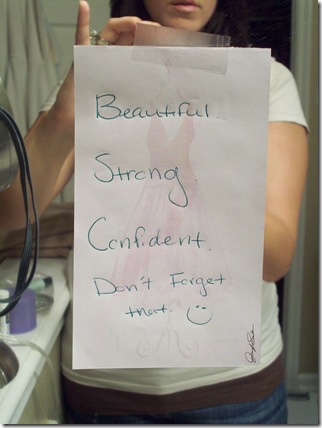 Beautiful.
Strong.
Confident.
Don't Forget
that. :)